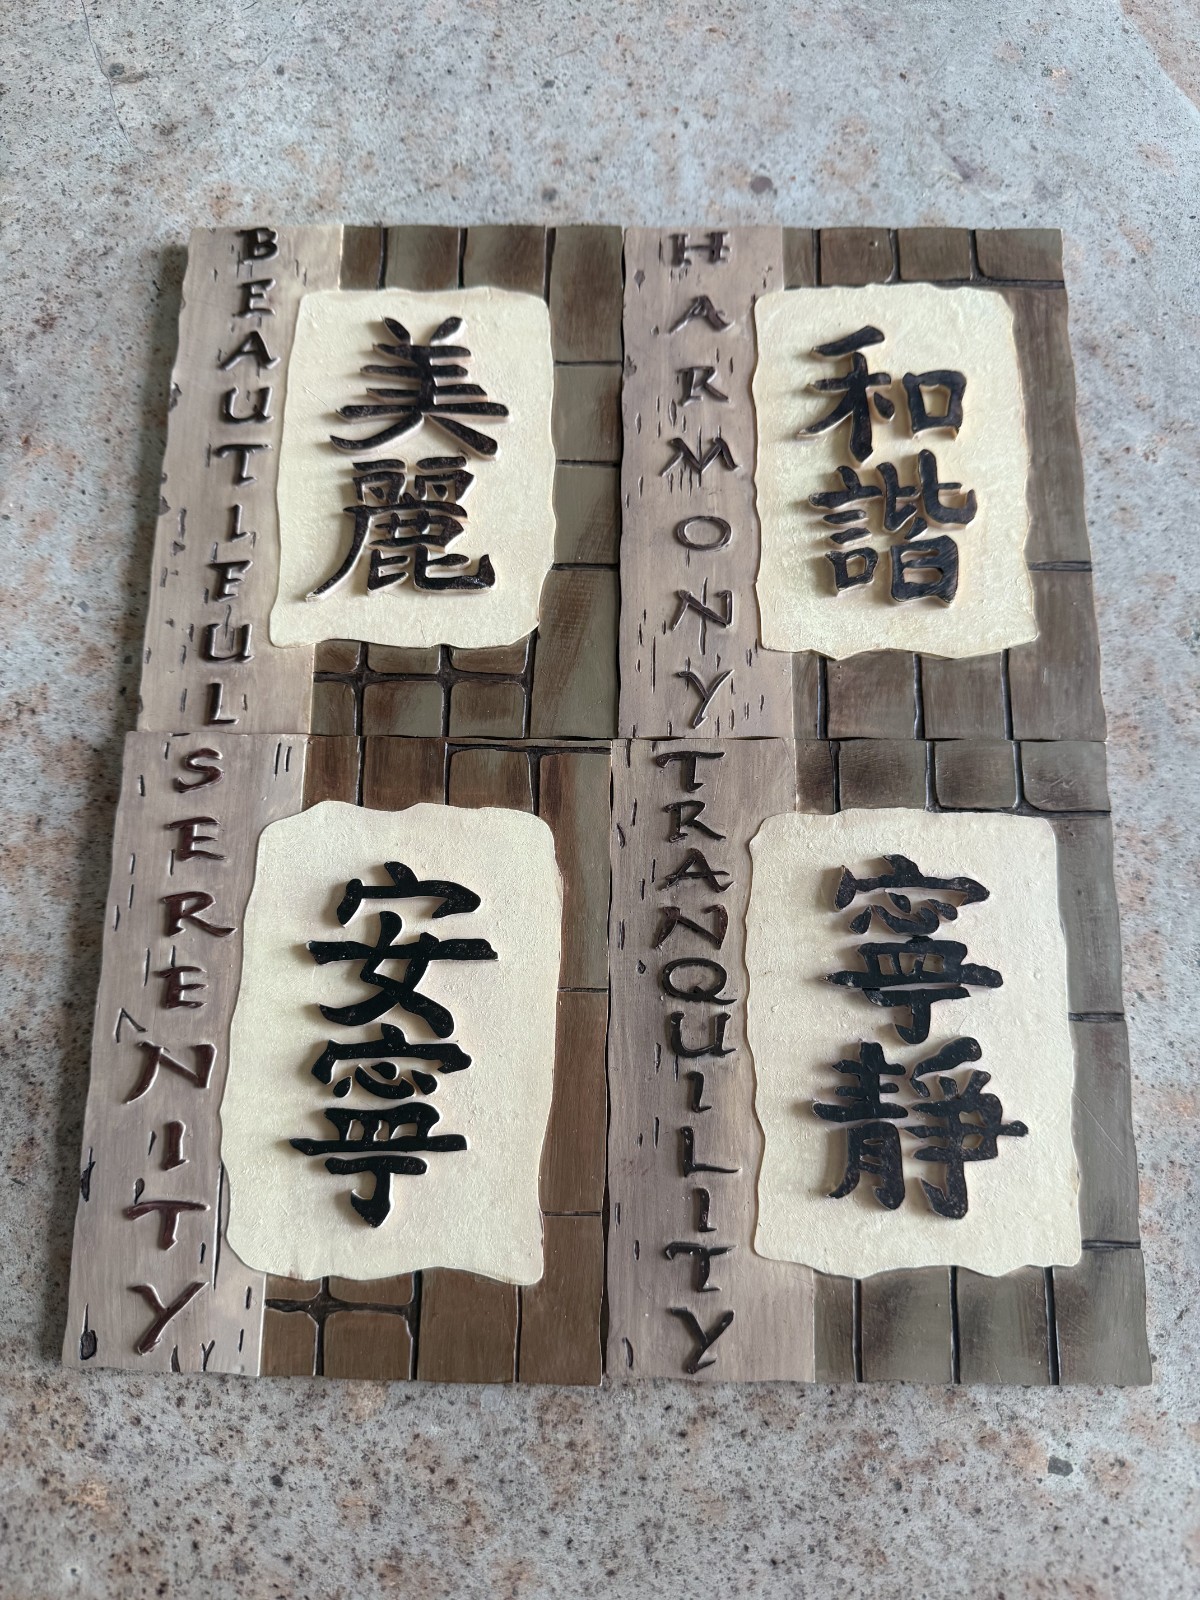 BEAUTIFUL
美麗
HARMONY
和諧
SERENITY
安寧
TRANQUILITY
寧靜